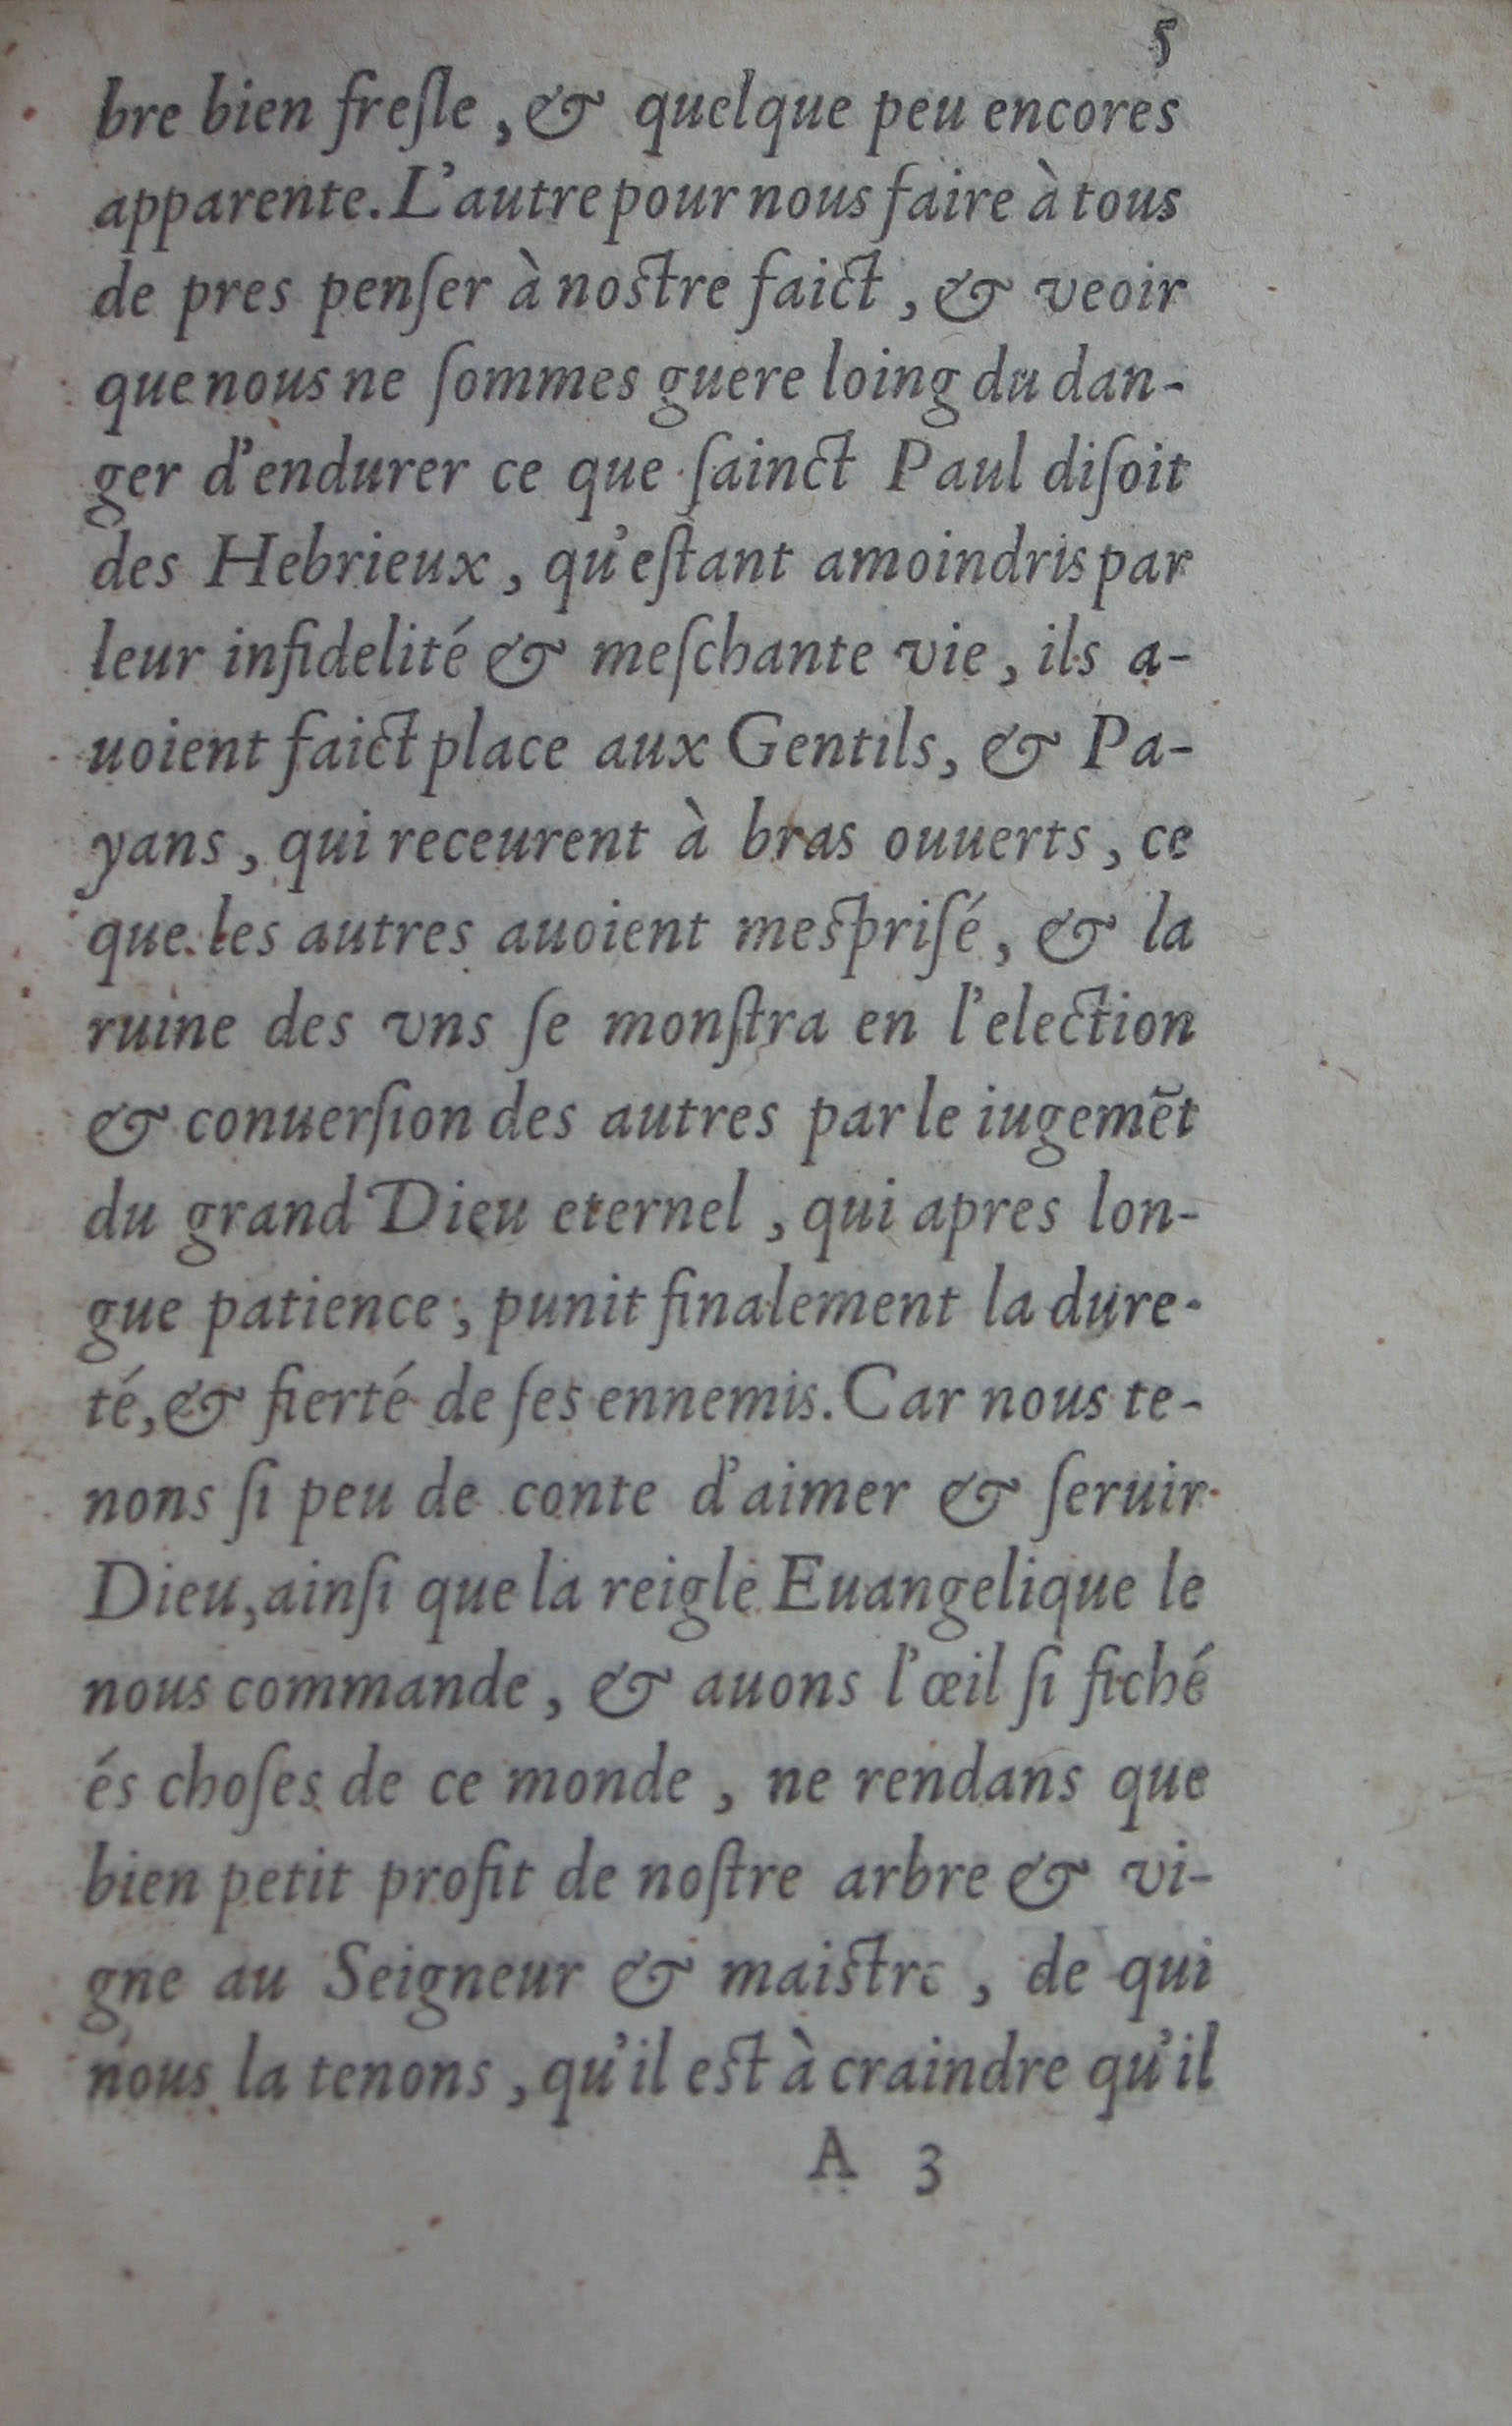 5
bre bien freſle, & quelque peu encores
apparente. L'autre pour nous faire à tous
de pres penſer à noſtre faict, & veoir
que nous ne ſommes guere loing du dan-
ger d'endurer ce que ſainct Paul diſoit
des Hebrieux, qu'eſtant amoindris par
leur infidelité & meſchante vie, ils a-
uoient faict place aux Gentils, & Pa-
yans, qui receurent à bras ouuerts, ce
que les autres auoient meſpriſé, & la
ruine des vns ſe monſtra en l'election
& conuerſion des autres par le iugemẽt
du grand Dieu eternel, qui apres lon-
gue patience, punit finalement la dure-
té, & fierté de ſes ennemis. Car nous te-
nons ſi peu de conte d'aimer & ſeruir
Dieu, ainſi que la reigle Euangelique le
nous commande, & auons l'œil ſi fiché
és choſes de ce monde, ne rendans que
bien petit profit de noſtre arbre & vi-
gne au Seigneur & maiſtre, de qui
nous la tenons, qu'il eſt à craindre qu'il
A 3